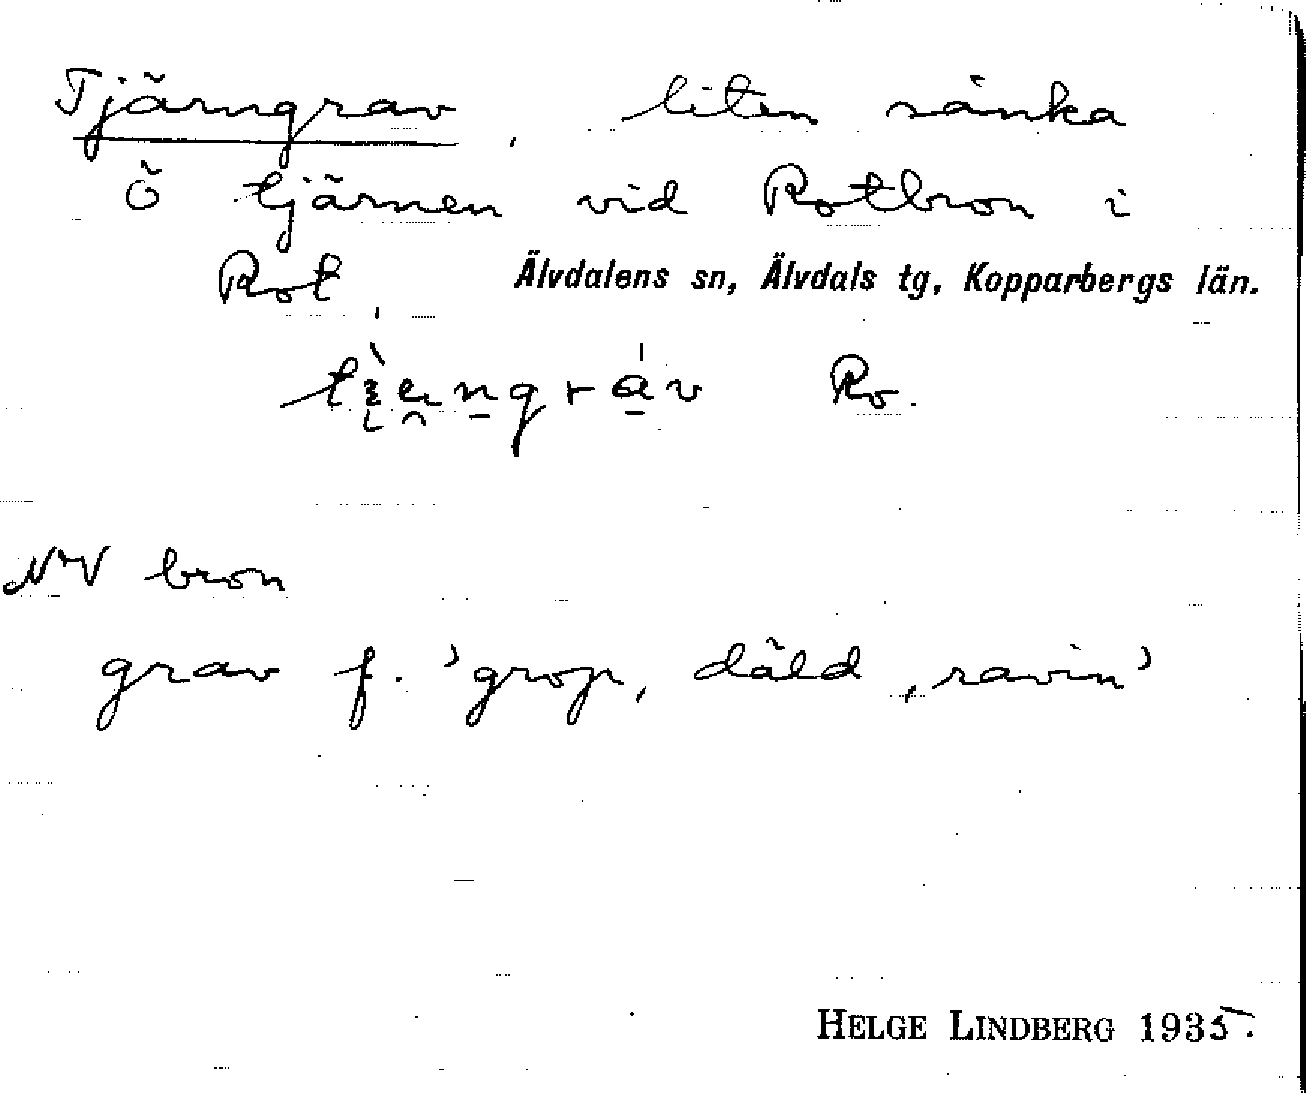 Tjärngrav, liten sänka
ö tjärnen vid Rotbron i
Rot, Älvdalens sn, Älvdals tg, Kopparbergs län.
Ro.
NV bron
grav f. 'grop, däld, ravin'
HELGE LINDBERG 1935.